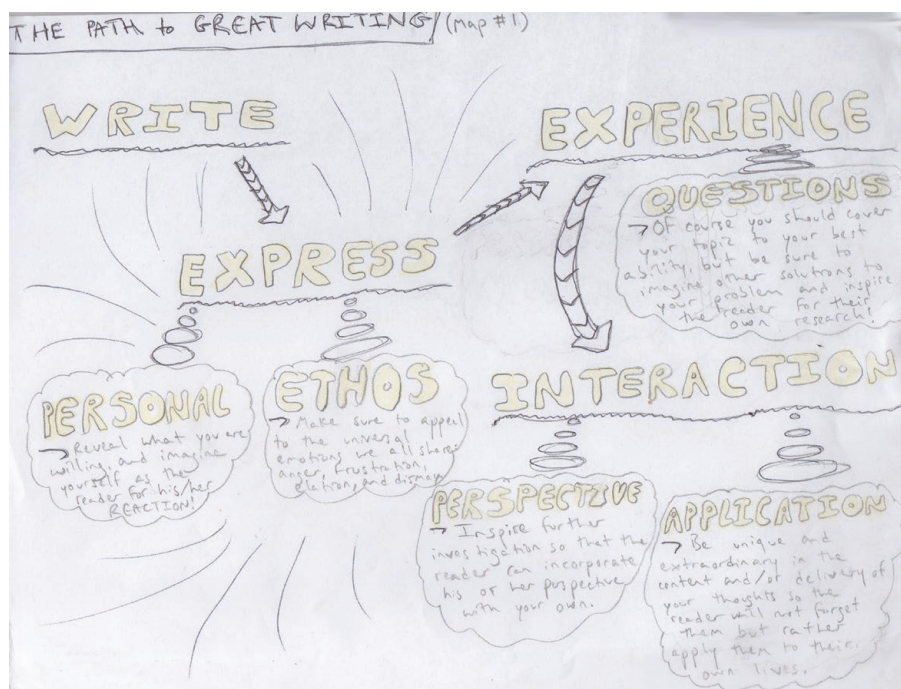 THE PATH to GREAT WRITING/ (Map #1)
WRITE
EXPRESS
PERSONAL
→ Reveal what you are
willing, and imagine
yourself as the
reader for his/her
REACTION!
ETHOS
→ Make sure to appeal
to the universal
emotions we all share:
anger, frustration,
elation, and dismay
EXPERIENCE
QUESTIONS
→ Of course you should cover
your topic to your best
ability, but be sure to
imagine other solutions to
your problem and inspire
the reader for their
own research!
INTERACTION
PERSPECTIVE
→ Inspire further
investigation so that the
reader can incorporate
his or her puspective
with your own.
APPLICATION
→ Be unique and
extraordinary in the
content and/or delivery of
your thoughts so the
reader will not forget
them but rather
apply them to their
own lives.